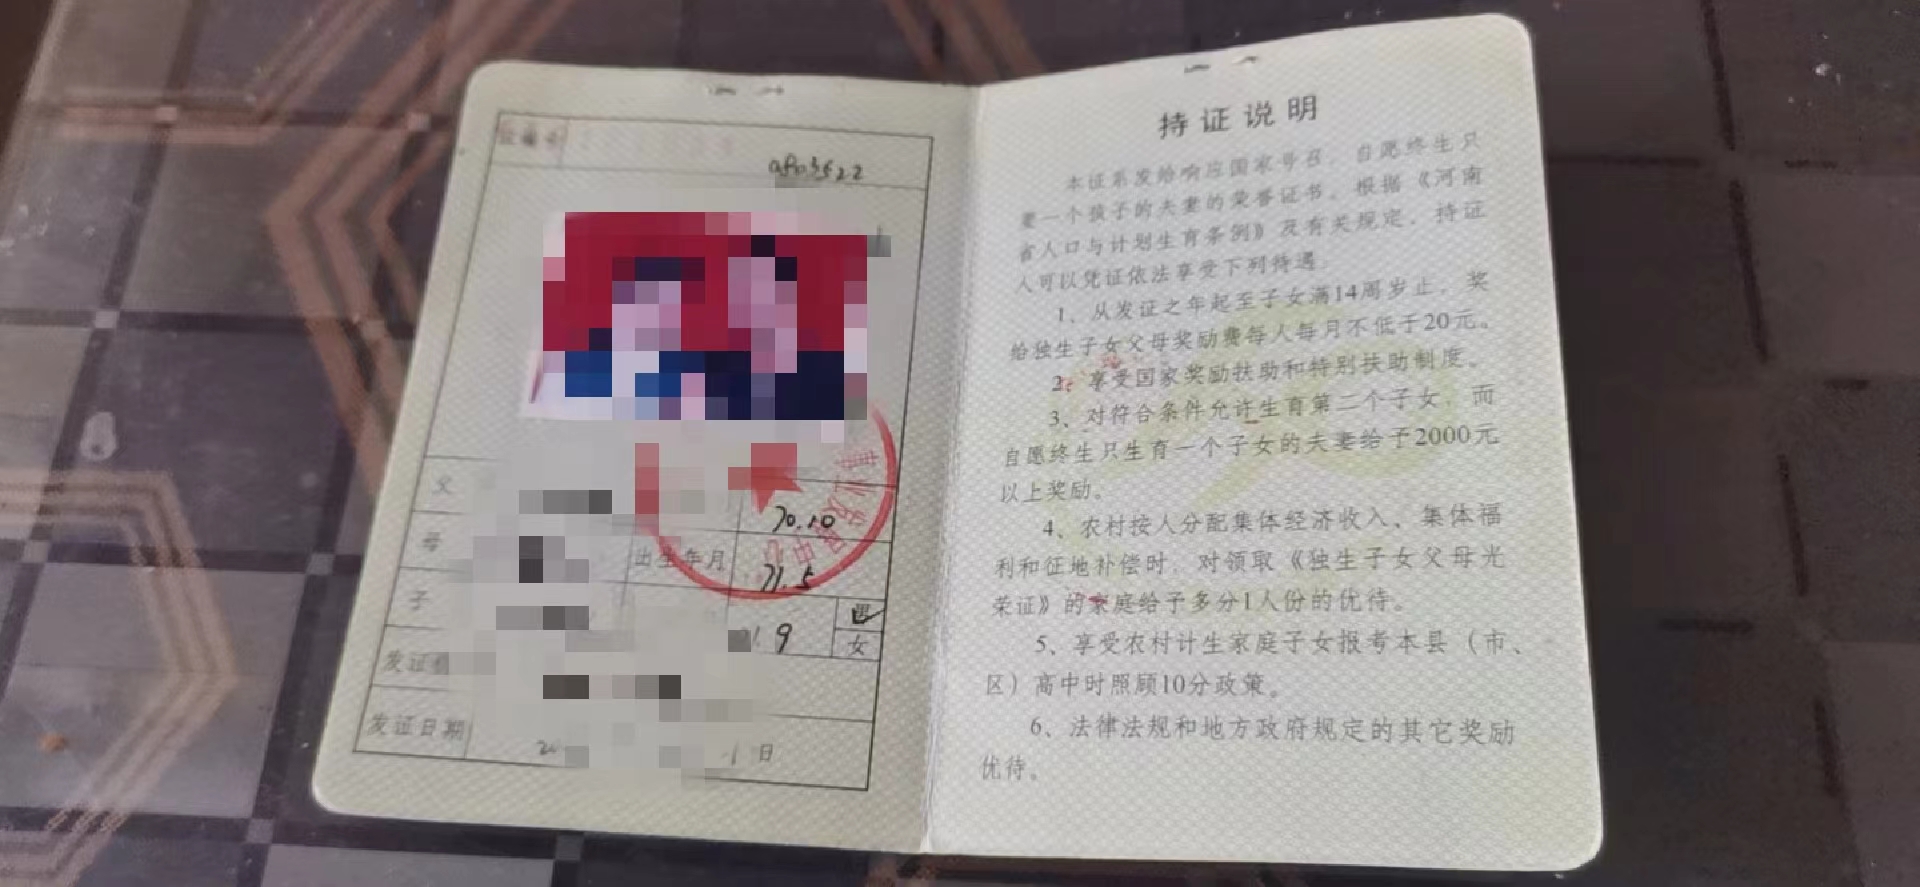 证编号
0803622
父
70.10
母
出生年月
71.5
子
.9
男
女
发证
发证日期
日
业发展中心
持证说明
本证系发给响应国家号召，自愿终生只
要一个孩子的夫妻的荣誉证书。根据《河南
省人口与计划生育条例》及有关规定，持证
人可以凭证依法享受下列待遇
1、从发证之年起至子女满14周岁止，奖
给独生子女父母奖励费每人每月不低于20元。
2、享受国家奖励扶助和特别扶助制度。
3、对符合条件允许生育第二个子女，而
自愿终生只生育一个子女的夫妻给予2000元
以上奖励。
4、农村按人分配集体经济收入、集体福
利和征地补偿时，对领取《独生子女父母光
荣证》的家庭给予多分1人份的优待。
5、享受农村计生家庭子女报考本县（市、
区）高中时照顾10分政策。
6、法律法规和地方政府规定的其它奖励
优待。